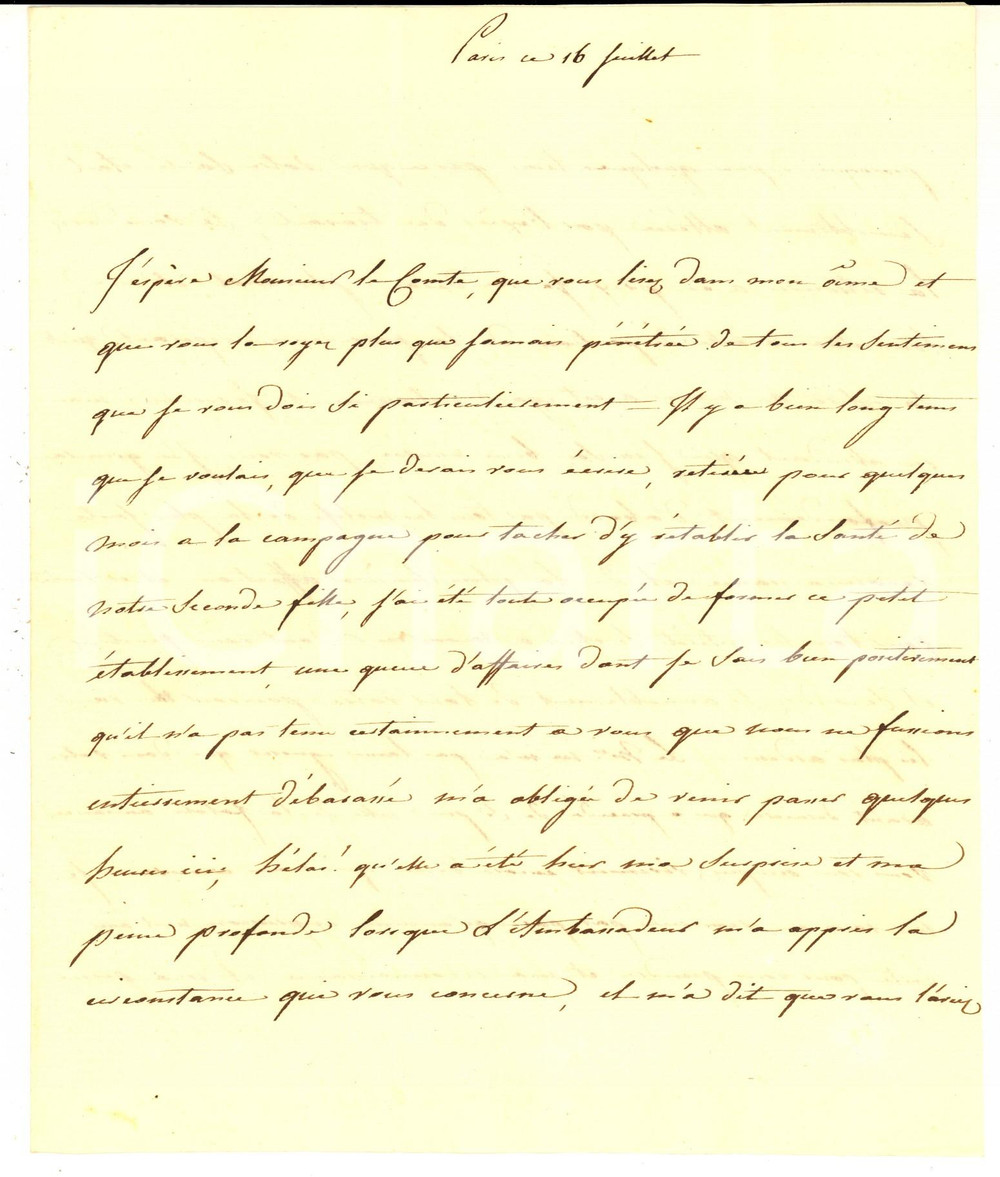 Paris ce 16 juillet
J'éspère Monsieur le Comte, que vous lisez dans mon âme et
que vous la voyez plus que jamais pénétrée de tous les sentimens
que je vous dois si particulierement — Il y a bien long-tems
que je voulais, que je devais vous écrire, retirée pour quelques
mois a la campagne pour tacher d'y rétablir la santé de
notre seconde fille, j'ai été toute occupée de former ce petit
établissement, une queue d'affaires dont je sais bien positivement
qu'il n'a pas tenu certainement a vous que nous ne fussions
entierement débarassé m'a obligée de venir passer quelques
heures ici, hélas! qu'elle a été hier ma surprise et ma
peine profonde lorsque L'Ambassadeur m'a appris la
circonstance qui vous concerne, et m'a dit que vous l'aviez